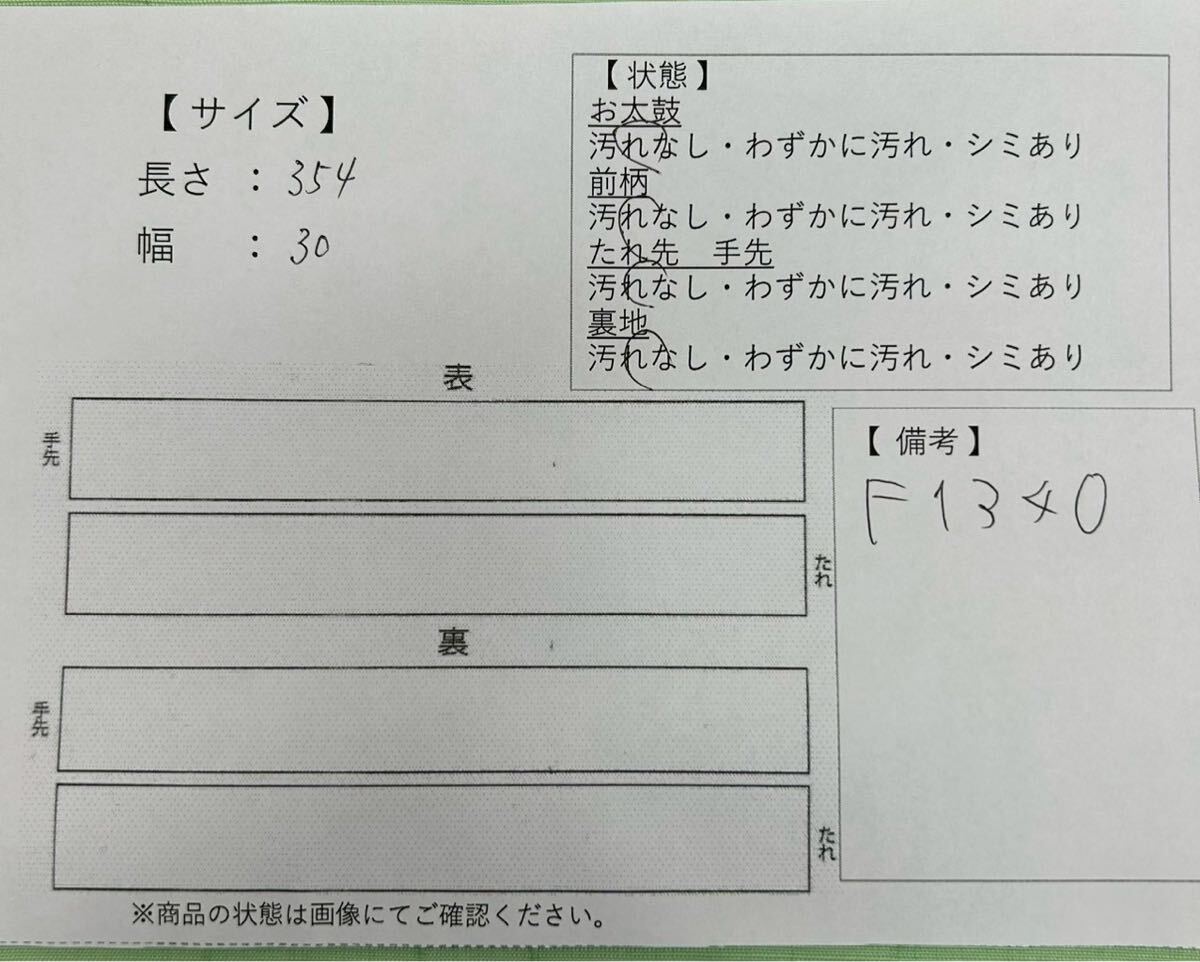 【 サイズ 】
長さ : 354
幅 : 30
【 状態 】
お太鼓
汚れなし・わずかに汚れ・シミあり
前柄
汚れなし・わずかに汚れ・シミあり
たれ先 手先
汚れなし・わずかに汚れ・シミあり
裏地
汚れなし・わずかに汚れ・シミあり
表
手先
たれ
裏
手先
たれ
※商品の状態は画像にてご確認ください。
【 備考 】
F1340